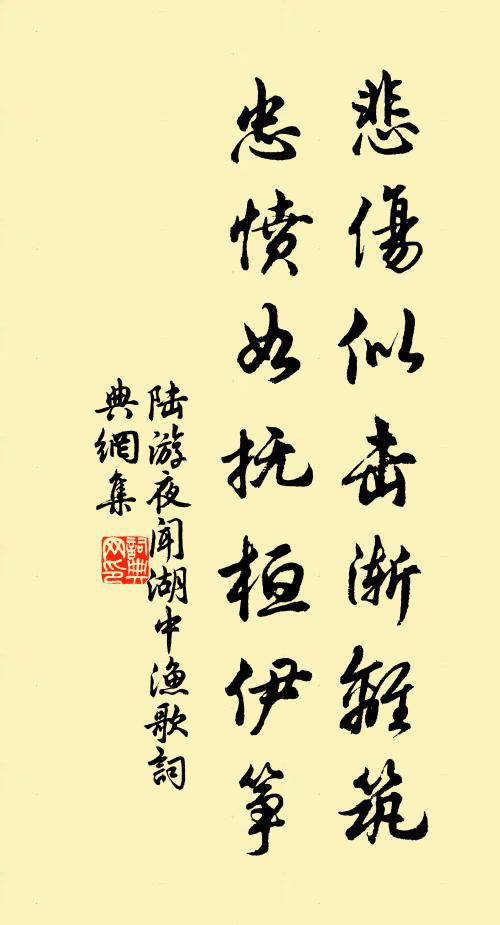 悲傷似击渐離筑
忠愤如抚桓伊筝
陆游夜闻湖中渔歌詞
典網集
詞典
网印